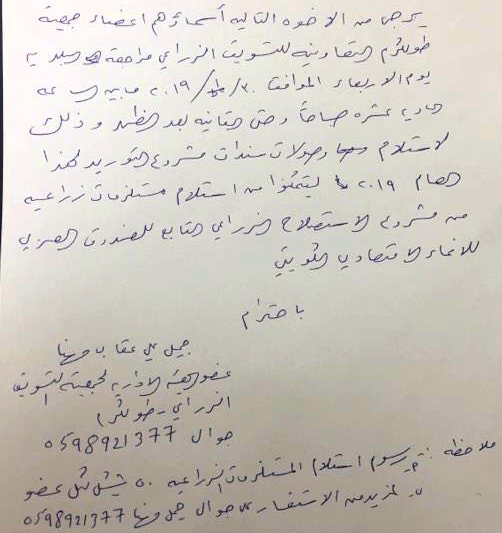 يرجى من الاخوه التاليه أسماؤهم اعضاء جمعية
طولكرم التعاونيه للتسويق الزراعي مراجعة البلديه
يوم الاربعاء الموافق ٣٠/١٠/٢٠١٩ ما بين الساعه
الحاديه عشره صباحاً وحتى الثانيه بعد الظهر وذلك
لاستلام وصولات سندات مشروع التوريد لهذا
العام ٢٠١٩ ليتمكنوا من استلام مستلزمات زراعيه
من مشروع الاستصلاح الزراعي التابع للصندوق العربي
للانماء الاقتصادي الكويتي
باحترام
جميل علي عقاب مهنا
عضو الهيئه الاداريه لجمعية التسويق
الزراعي - طولكرم
جوال 0598921377
ملاحظة : رسوم استلام المستلزمات الزراعيه ٥٠ شيكل لكل عضو
لمزيد من الاستفسار على جوال جميل مهنا 0598921377